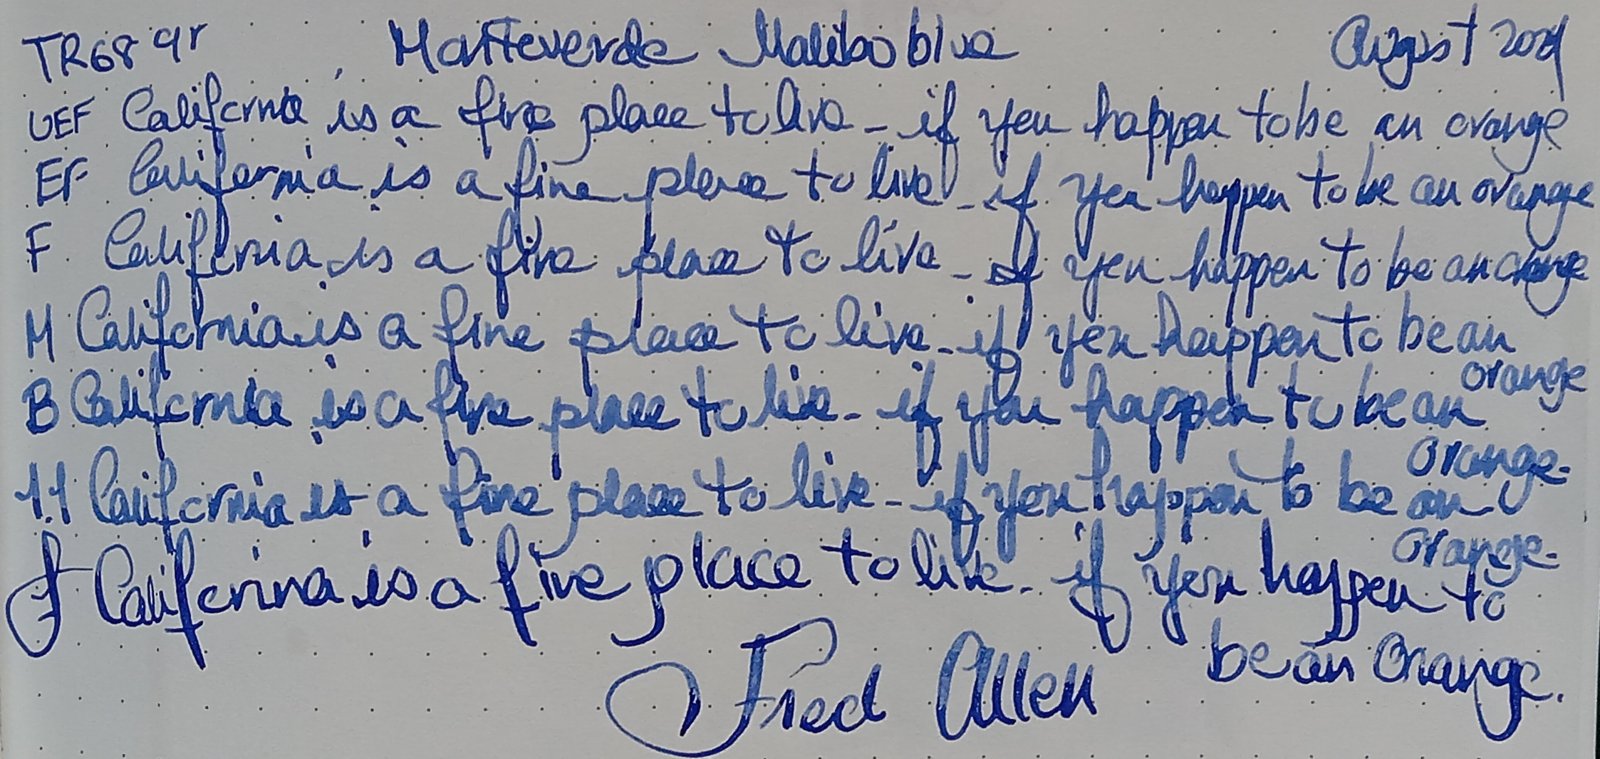 TR68 gr Monteverde Malibu blue August 2024
UEF California is a fine place to live - if you happen to be an orange
EF California is a fine place to live - if you happen to be an orange
F California is a fine place to live - if you happen to be an orange
M California is a fine place to live - if you happen to be an orange
B California is a fine place to live - if you happen to be an orange
1.1 California is a fine place to live - if you happen to be an orange.
J California is a fine place to live - if you happen to be an Orange.
Fred Allen